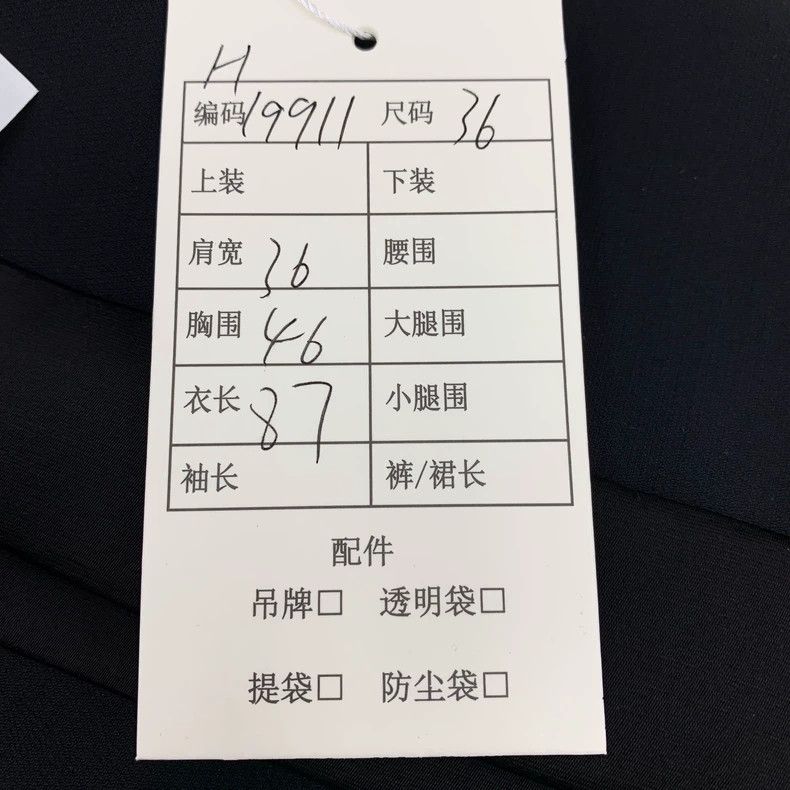 H
编码 19911 尺码 36
上装 下装
肩宽 36 腰围
胸围 46 大腿围
衣长 87 小腿围
袖长 裤/裙长
配件
吊牌□ 透明袋□
提袋□ 防尘袋□